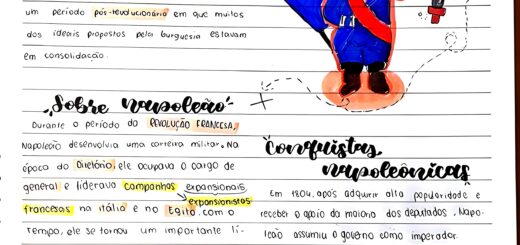 um período pós-revolucionário em que muitos
dos ideais propostos pela burguesia estavam
em consolidação.
Sobre napoleão
Durante o período da REVOLUÇÃO FRANCESA,
Napoleão desenvolvia uma carreira militar. Na
época do Diretório, ele ocupava o cargo de
general e liderava campanhas expansionais
expansionistas
francesas na itália e no Egito. com o
tempo, ele se tornou um importante lí-
Conquistas
napoleônicas
Em 1804, após adquirir alta popularidade e
receber o apoio da maioria dos deputados. Napo-
leão assumiu o governo como imperador.